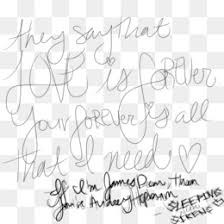 they say that
LOVE is FOREVER
Your FOREVER is all
that I need ♡
If I'm James Dean, then
You're Audrey Hepburn
- SLEEPING
SIRENS